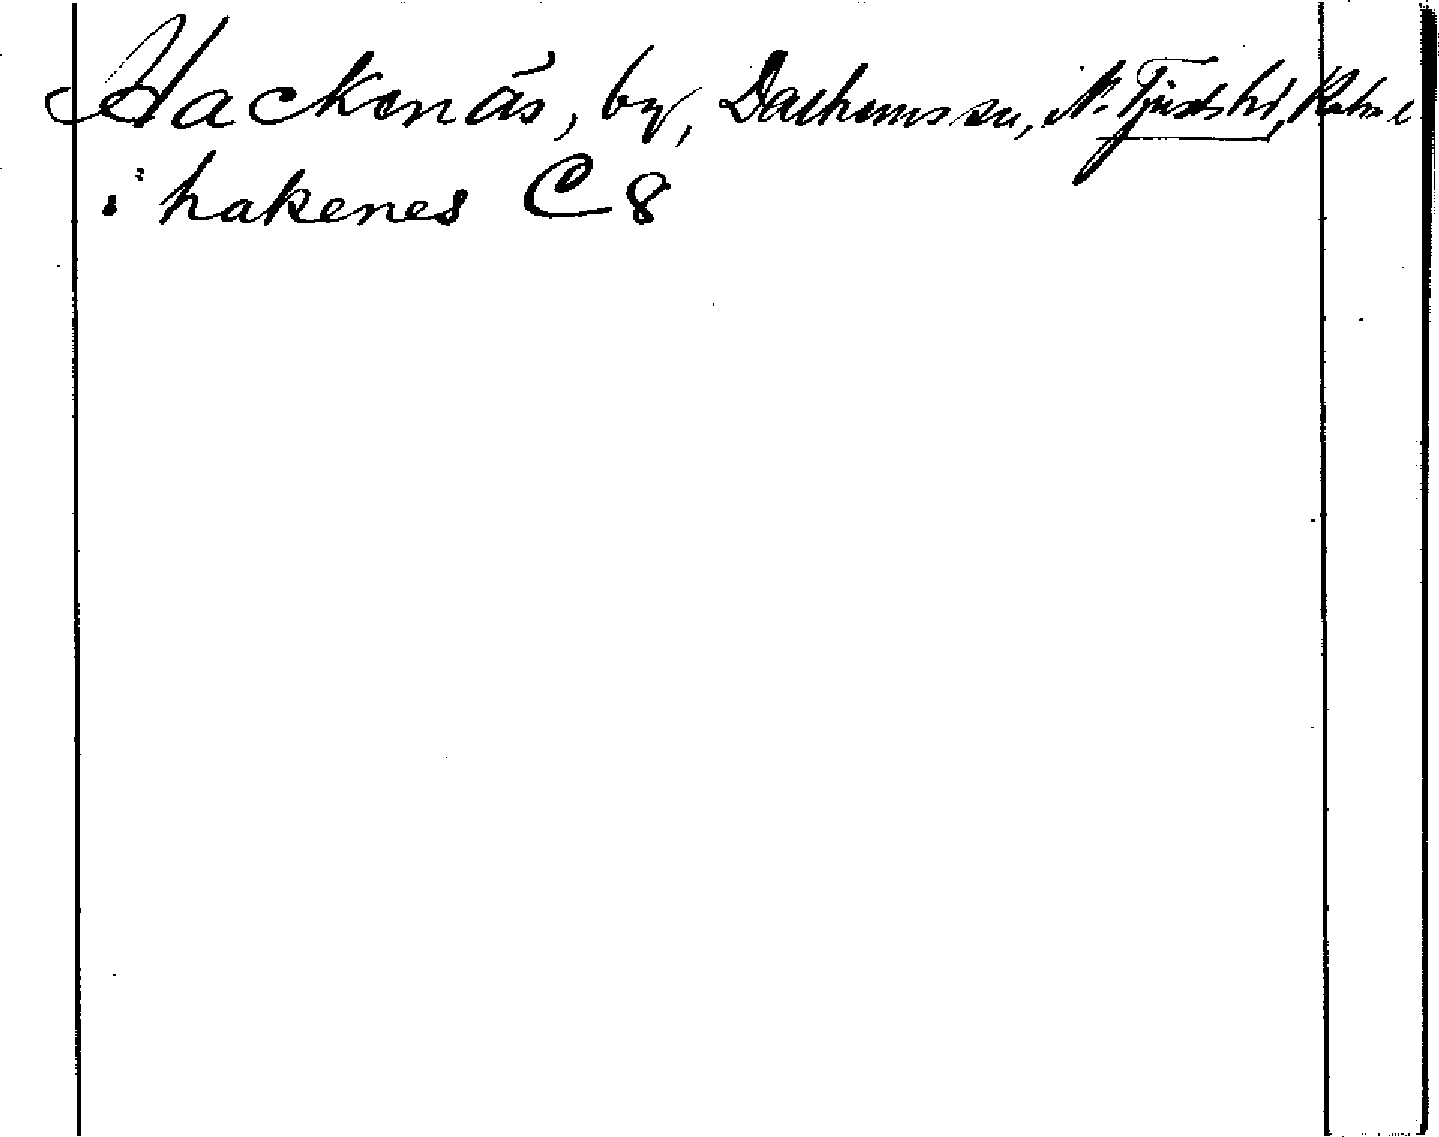 Hackenäs, by, Dalhems sn, N. Tjusts hd, Kalm. l
i hakenes C 8